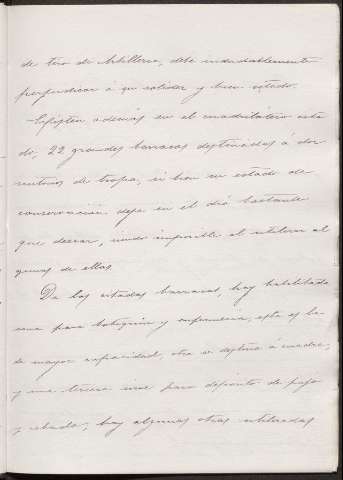 de tiro de Artillería, debe indudablemente
perjudicar á su solidez y buen estado.
Existen además en el cuadrilátero cita
do, 22 grandes barracas destinadas á dor
mitorios de tropa, si bien su estado de
conservación deja en el día bastante
que desear, siendo imposible el utilizar al
gunas de ellas.
De las citadas barracas, hay habilitada
una para botiquín y enfermería, esta es la
de mayor capacidad, otra se destina á cuadra,
y una tercera sirve para depósito de paja
y cebada; hay algunas otras utilizadas